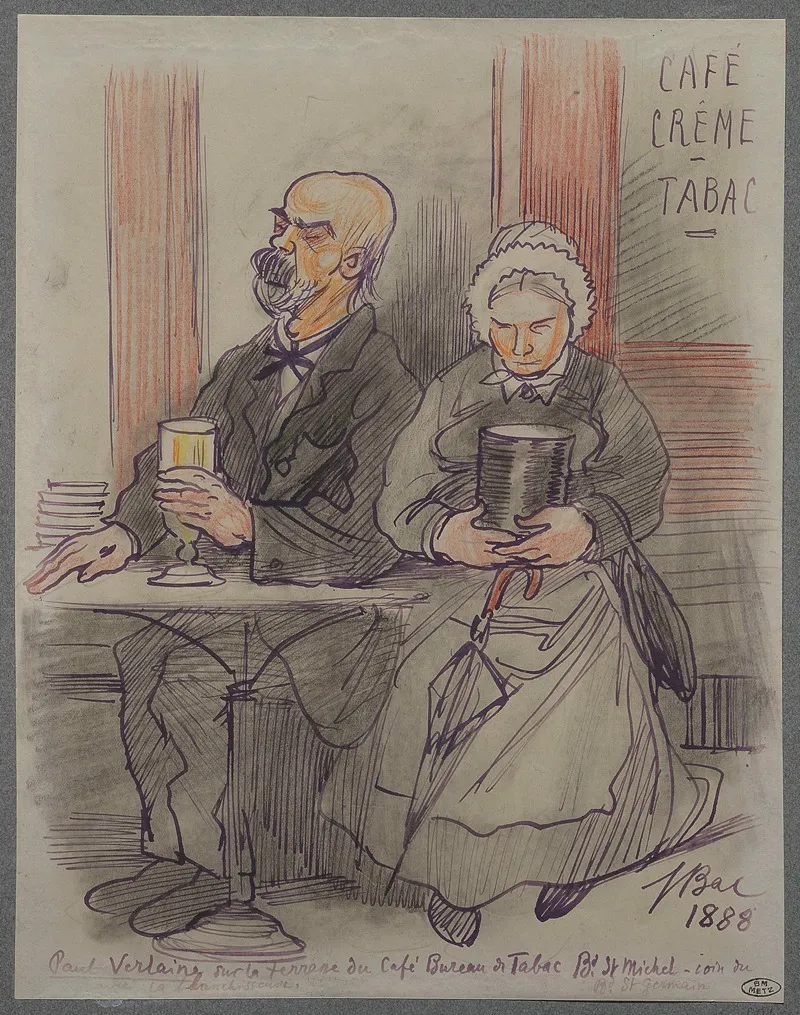 CAFÉ
CRÊME
-
TABAC
J Bac
1888
Paul Verlaine sur la terrase du Café Bureau de Tabac Bd St Michel - coin du
Bd St Germain
BM
METZ